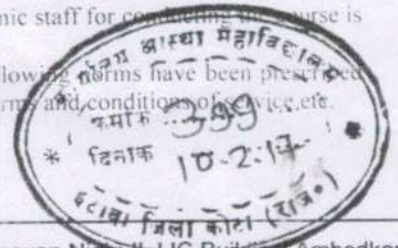 mic staff for conducting the course is
lowing norms have been prescribed
rms and conditions of service etc.
आस्था महाविद्यालय
क्रमांक 399
दिनांक 10-2-17
इटावा जिला कोटा (राज०)
LIC Building